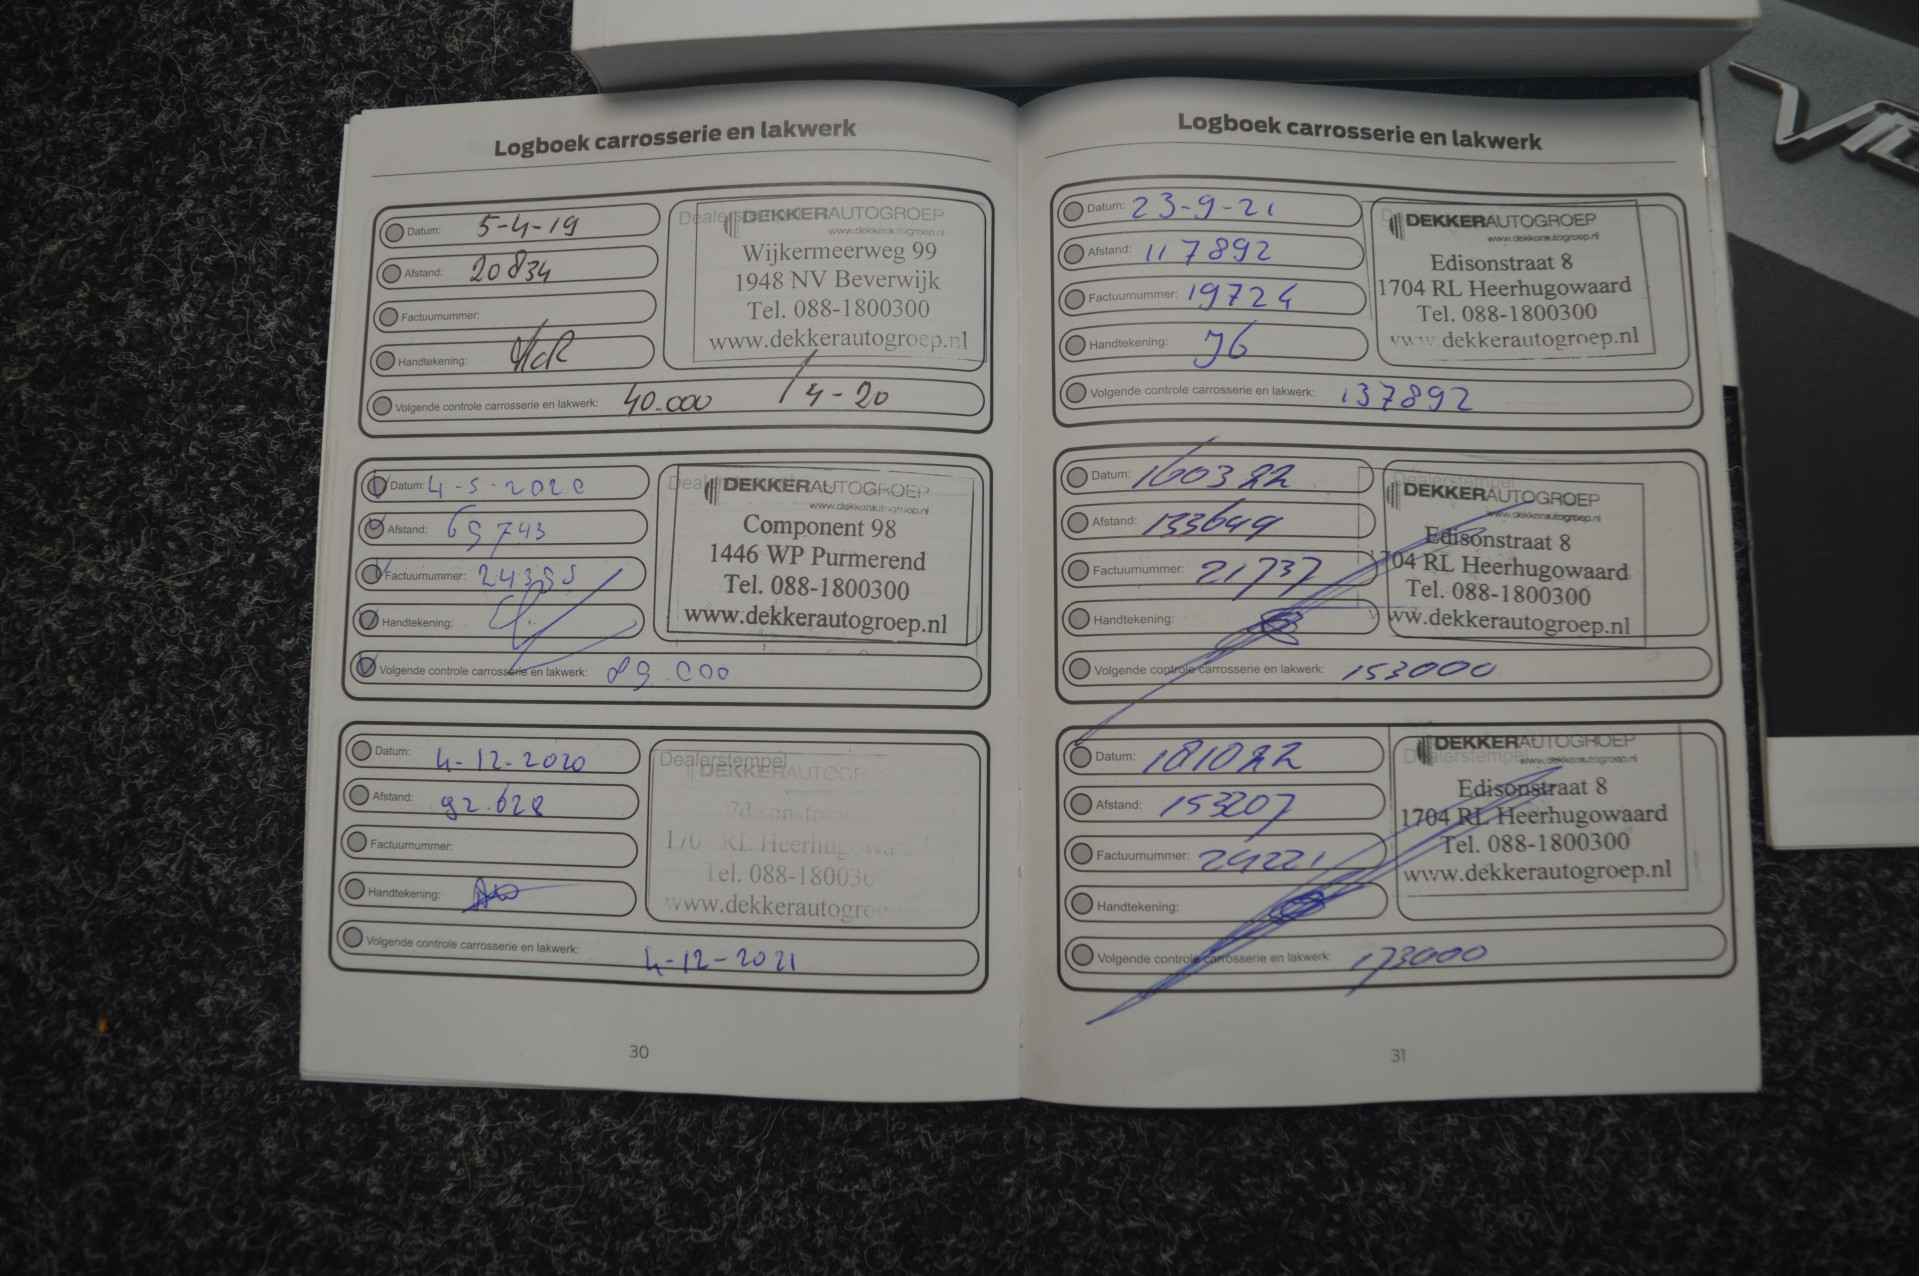 Logboek carrosserie en lakwerk
Datum: 5-4-19
Afstand: 20834
Factuurnummer:
Handtekening:
Dealerstempel
DEKKERAUTOGROEP
www.dekkerautogroep.nl
Wijkermeerweg 99
1948 NV Beverwijk
Tel. 088-1800300
www.dekkerautogroep.nl
Volgende controle carrosserie en lakwerk: 40.000 / 4-20
Datum: 4-5-2020
Afstand: 69743
Factuurnummer:
Handtekening:
DEKKERAUTOGROEP
www.dekkerautogroep.nl
Component 98
1446 WP Purmerend
Tel. 088-1800300
www.dekkerautogroep.nl
Volgende controle carrosserie en lakwerk: 89.000
Datum: 4-12-2020
Afstand: 92.628
Factuurnummer:
Handtekening:
Dealerstempel
DEKKERAUTOGR
RL Heerhugowa
Tel. 088-18003
www.dekkerautogro
Volgende controle carrosserie en lakwerk: 4-12-2021
30
Logboek carrosserie en lakwerk
Datum: 23-9-21
Afstand: 117892
Factuurnummer: 19724
Handtekening: JG
DEKKERAUTOGROEP
www.dekkerautogroep.nl
Edisonstraat 8
1704 RL Heerhugowaard
Tel. 088-1800300
www.dekkerautogroep.nl
Volgende controle carrosserie en lakwerk: 137892
Datum: 160322
Afstand: 133649
Factuurnummer: 21737
Handtekening:
Dealerstempel
DEKKERAUTOGROEP
www.dekkerautogroep.nl
Edisonstraat 8
1704 RL Heerhugowaard
Tel. 088-1800300
ww.dekkerautogroep.nl
Volgende controle carrosserie en lakwerk: 153000
Datum: 181022
Afstand: 153207
Factuurnummer: 24221
Handtekening:
Dealerstempel
DEKKERAUTOGROEP
www.dekkerautogroep.nl
Edisonstraat 8
1704 RL Heerhugowaard
Tel. 088-1800300
www.dekkerautogroep.nl
Volgende controle carrosserie en lakwerk: 173000
31